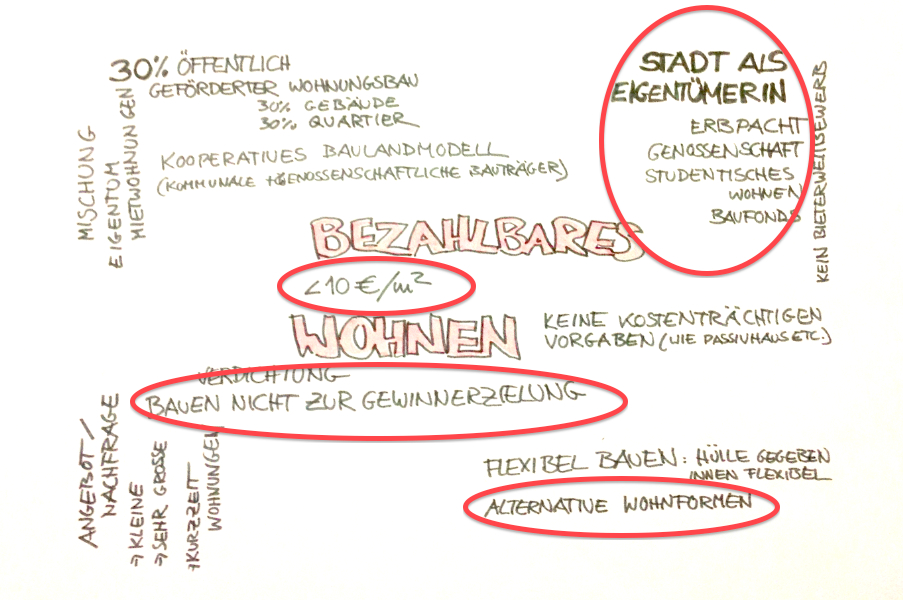 30% ÖFFENTLICH
GEFÖRDERTER WOHNUNGSBAU
30% GEBÄUDE
30% QUARTIER
MISCHUNG
EIGENTUM
MIETWOHNUNGEN
KOOPERATIVES BAULANDMODELL
(KOMMUNALE + GENOSSENSCHAFTLICHE BAUTRÄGER)
STADT ALS
EIGENTÜMERIN
ERBPACHT
GENOSSENSCHAFT
STUDENTISCHES
WOHNEN
BAUFONDS
KEIN BIETERWETTBEWERB
BEZAHLBARES
<10 €/m²
WOHNEN
KEINE KOSTENTRÄCHTIGEN
VORGABEN (WIE PASSIVHAUS ETC.)
VERDICHTUNG
BAUEN NICHT ZUR GEWINNERZIELUNG
ANGEBOT/
NACHFRAGE
⇒ KLEINE
⇒ SEHR GROSSE
⇒ KURZZEIT
WOHNUNGEN
FLEXIBEL BAUEN: HÜLLE GEGEBEN
INNEN FLEXIBEL
ALTERNATIVE WOHNFORMEN